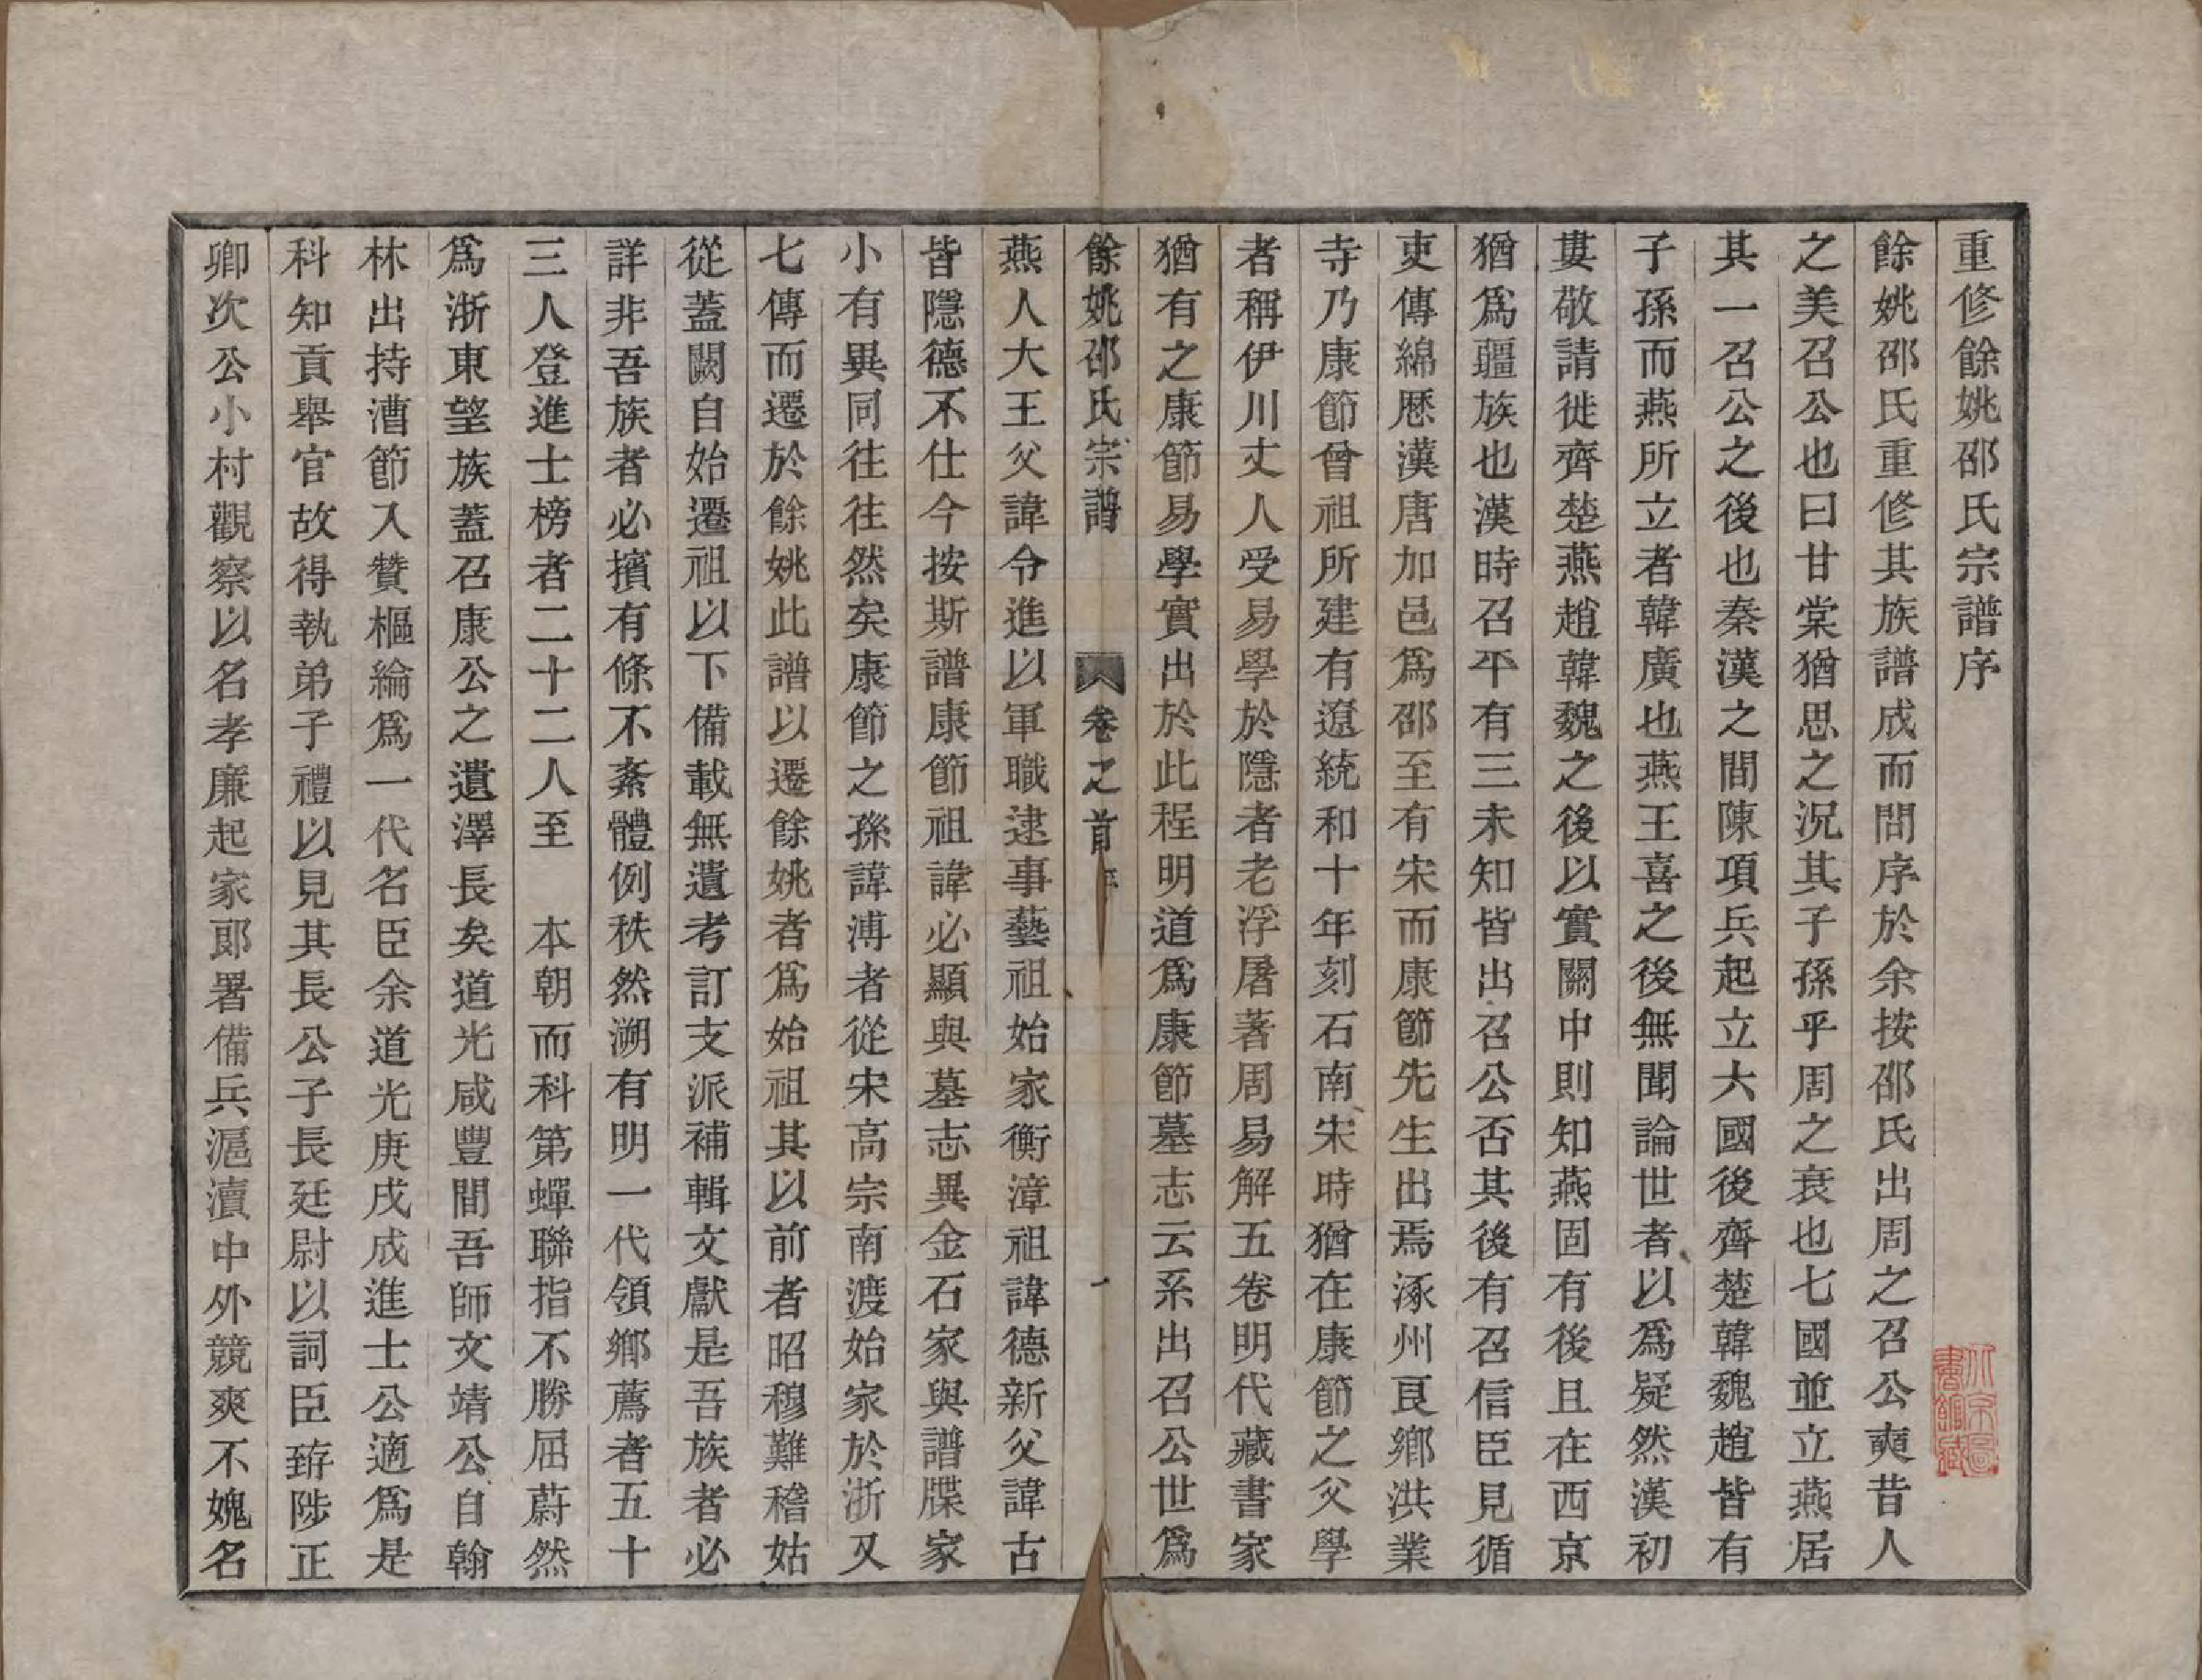 重修餘姚邵氏宗譜序
餘姚邵氏重修其族譜成而問序於余按邵氏出周之召公奭昔人
之美召公也曰甘棠猶思之況其子孫乎周之衰也七國並立燕居
其一召公之後也秦漢之間陳項兵起立六國後齊楚韓魏趙皆有
子孫而燕所立者韓廣也燕王喜之後無聞論世者以爲疑然漢初
婁敬請徙齊楚燕趙韓魏之後以實關中則知燕固有後且在西京
猶爲疆族也漢時召平有三未知皆出召公否其後有召信臣見循
吏傳綿歷漢唐加邑爲邵至有宋而康節先生出焉涿州良鄉洪業
寺乃康節曾祖所建有遼統和十年刻石南宋時猶在康節之父學
者稱伊川丈人受易學於隱者老浮屠著周易解五卷明代藏書家
猶有之康節易學實出於此程明道爲康節墓志云系出召公世爲
餘姚邵氏宗譜 卷之首 序 一
燕人大王父諱令進以軍職逮事藝祖始家衡漳祖諱德新父諱古
皆隱德不仕今按斯譜康節祖諱必顯與墓志異金石家與譜牒家
小有異同往往然矣康節之孫諱溥者從宋高宗南渡始家於浙又
七傳而遷於餘姚此譜以遷餘姚者爲始祖其以前者昭穆難稽姑
從蓋闕自始遷祖以下備載無遺考訂支派補輯文獻是吾族者必
詳非吾族者必擯有條不紊體例秩然溯有明一代領鄉薦者五十
三人登進士榜者二十二人至 本朝而科第蟬聯指不勝屈蔚然
爲浙東望族蓋召康公之遺澤長矣道光咸豐間吾師文靖公自翰
林出持漕節入贊樞綸爲一代名臣余道光庚戌成進士公適爲是
科知貢舉官故得執弟子禮以見其長公子長廷尉以詞臣洊陟正
卿次公小村觀察以名孝廉起家郎署備兵滬瀆中外競爽不媿名